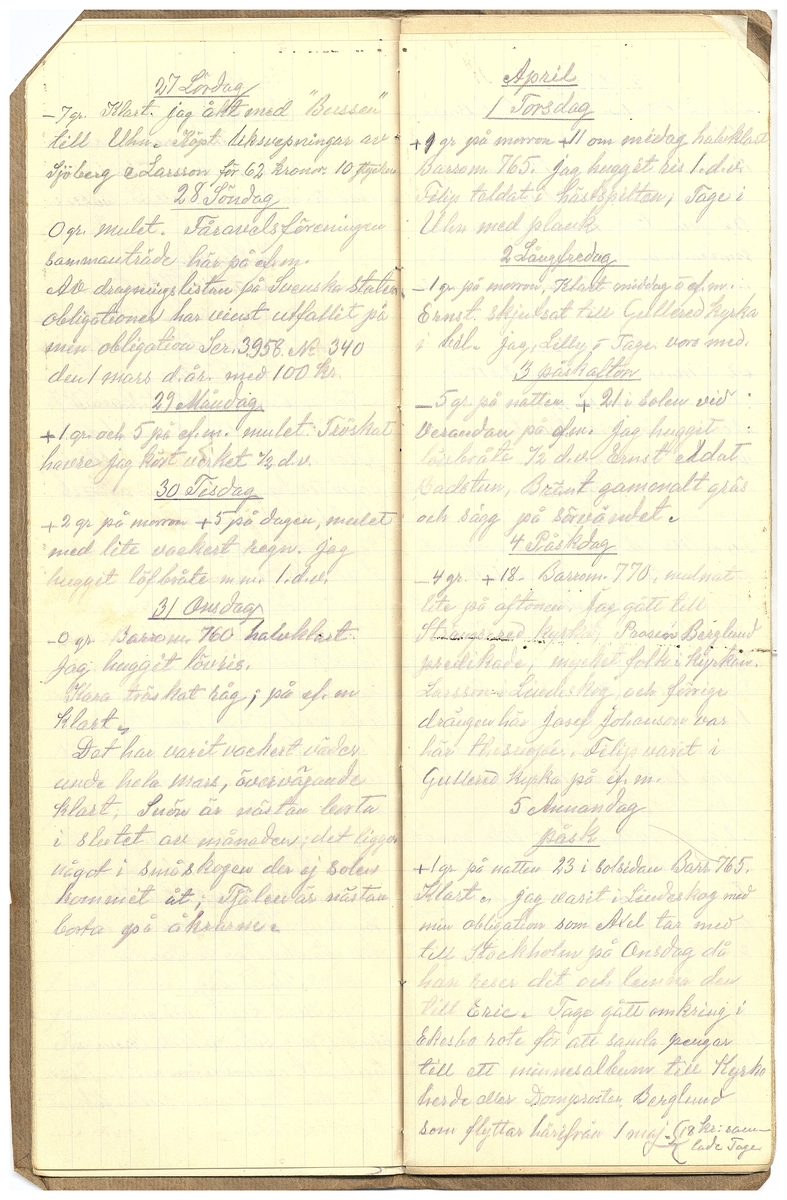 27 Lördag
-7 gr. Klart. jag åkt med "Bussen"
till Uhn. Köpt Uksvepningar av
Sjöberg & Larsson för 62 kronor. 10 stycken
28 Söndag
0 gr. mulet. Fåravelsföreningen
sammanträde här på ef.m.
Av dragningslistan på Svenska staten
obligationer har vinst utfallit på
min obligation Ser. 3958. No 340
den 1 mars d.år. med 100 kr.
29 Måndag
+1 gr. och 5 på ef.m. mulet. Tröskat
havre jag kört verket 1/2 d.v.
30 Tisdag
+2 gr på morron +5 på dagen, mulet
med lite vackert regn. jag
hugget löfbråte m.m. 1. d.v.
31 Onsdag
-0 gr Barrom. 760 halvklart.
jag hugget lövris.
Kara tröskat råg; på ef.m
klart.
Det har varit vackert väder
unde hela mars, övervägande
klart; Snön är nästan borta
i slutet av månaden; det ligger
något i småskogen der ej solen
kommet åt; Tjälen är nästan
borta på åkrarne.
April
1 Torsdag
+1 gr på morron +11 om midag halvklart
Barrom. 765. jag hugget ris 1. d.v.
Filip toldat i hästspilten; Tage i
Uhn med plank
2 Långfredag
-1 gr på morron, Klart middag o ef.m.
Ernst skjutsat till Gullered kyrka
i bil. jag, Lilly o Tage voro med.
3 påskafton
-5 gr på natten + 21 i solen vid
verandan på ef.m. jag hugget
lövbråte 1/2 d.v. Ernst eldat
badstun, Bränt gammalt gräs
och sågg på sörvändet.
4 Påskdag
-4 gr. +18- Barrom. 770, mulnat
lite på aftonen. Jag gått till
Strängsered kyrka; Prosten Berglund
predikade, mycket folk i kyrkan.
Larsson-Lindeskog och förrige
drängen här Josef Johanson var
här thesuper. Filip varit i
Gullered kyrka på ef.m.
5 Annandag
påsk
+1 gr på natten 23 i solsidan Barr 765.
Klart. jag varit i Lindeskog med
min obligation som Axel tar med
till Stockholm på Onsdag då
han reser dit och lemna den
till Eric. Tage gått omkring i
Ekesbo rote för att samla pengar
till ett minnesalbum till Kyrko
herde eller Domprosten Berglund
som flyttar härifrån 1 maj. (18 kr: sam-
lade Tage